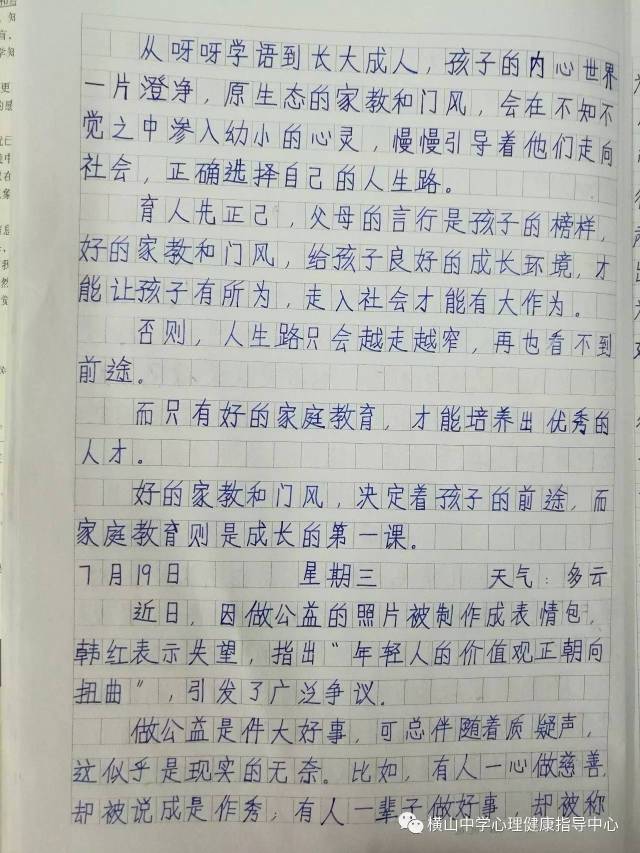 从呀呀学语到长大成人，孩子的内心世界
一片澄净，原生态的家教和门风，会在不知不
觉之中渗入幼小的心灵，慢慢引导着他们走向
社会，正确选择自己的人生路。
育人先正己，父母的言行是孩子的榜样，
好的家教和门风，给孩子良好的成长环境，才
能让孩子有所为，走入社会才能有大作为。
否则，人生路只会越走越窄，再也看不到
前途。
而只有好的家庭教育，才能培养出优秀的
人才。
好的家教和门风，决定着孩子的前途，而
家庭教育则是成长的第一课。
7月19日 星期三 天气：多云
近日，因做公益的照片被制作成表情包，
韩红表示失望，指出“年轻人的价值观正朝向
扭曲”，引发了广泛争议。
做公益是件大好事，可总伴随着质疑声，
这似乎是现实的无奈。比如，有人一心做慈善，
却被说成是作秀；有人一辈子做好事，却被称
横山中学心理健康指导中心